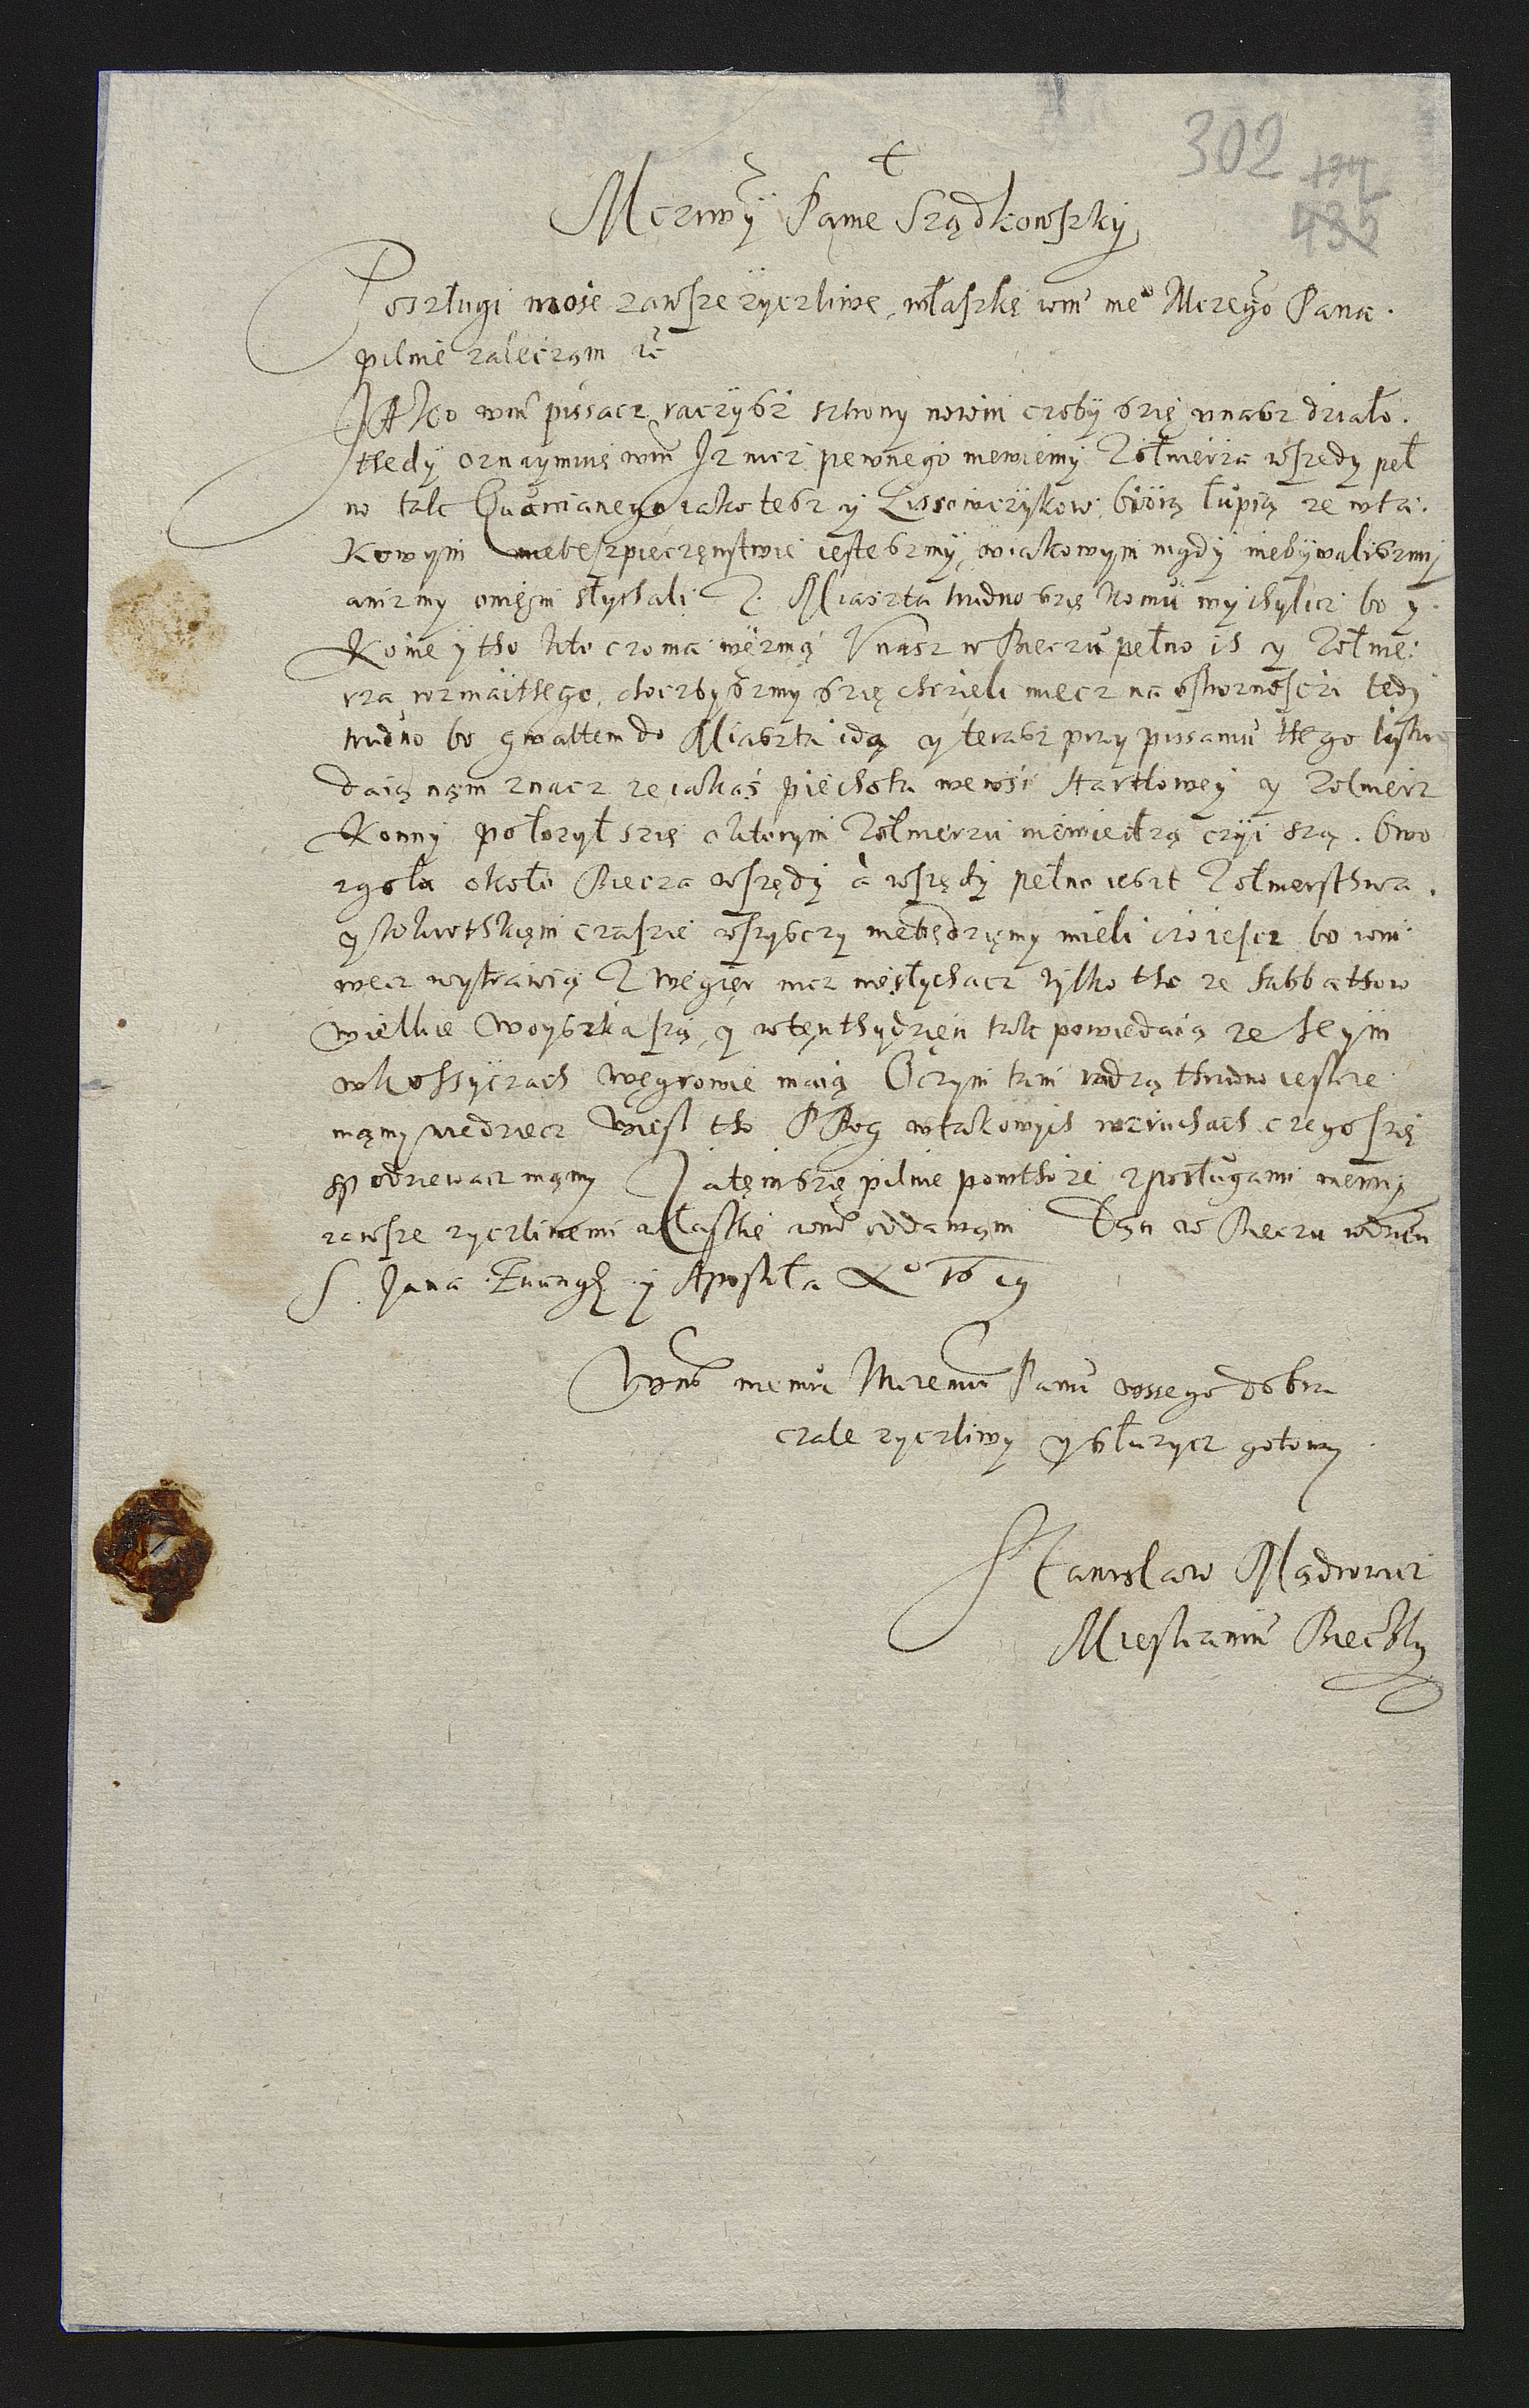 302
+
Mcziwÿ Panie Srządkowſzkÿ
Poszlugi moie zawſze zÿczliwe, właſzkę wm̃ me͠o Mczego Pana.
pilnie zaleczam ec̃
JAko wm̃ pissacz raczÿsz sztrony nowin czoby szię vnasz działo.
thedÿ oznaymuię wm̃ Iz nicz pewnego niewiemÿ Żołnierza wſzedy peł
no tak Quarcianego iako tesz y Lissowczÿkow, biiÿą łupią ze wta.
kowym niebeſzpieczęnstwie iestesmÿ, wiakowym nigdÿ niebÿwaliszmÿ
anizmy oniẹm słychali Z Miaszta trudno szię komu wychylicz bo y.
Konie y tho kto czo ma weżmą Vnasz w Bieczu pełno ich y Żołnie.
rza rozmaithego, choczbyszmy szię chczieli miecz na ostroznoſczi tedÿ
trudno bo gwałtem do Miaszta idą y terasz przy pissaniu thego listu
daią nąm znacz ze iakaś piechota wewsi Harklowey y Zołnierz
Konny połozył szię o ktorym Żołnierzu niewiedzą czyi są. Owo
zgoła około Biecza wſzędÿ a wſzędÿ pełno iest Żołnierſthwa.
y wkrothkięm czaſzie wſzysczy niebędzięmy mieli czo ieſcz bo wni
wecz wytrawią Z Węgier nicz niesłychacz tylko tho ze Sabbathow
wielkie woyszka są, y wten thydzięn tak powiedaią ze Seÿm
wkoſsyczach węgrowie maią O czym tam radzą thrudno ieſzcze
mąmy wiedziecz wieſ tho P Bog wtakowych wzruchach czego ſzię
spodziewacz mąmy Zatęm szię pilnie powthore z posługami memi
zawſze zyczliwemi właſkę wm̃ oddawąm Dąn w Bieczu wdzień
S. Jana Euang: y Apostoła A͠o 1619
Wm̃ memu Mczemu Panu wssego dobra
czale zyczliwy y słuzycz gotowy
Stanislaw
Miesczanin Bieczky